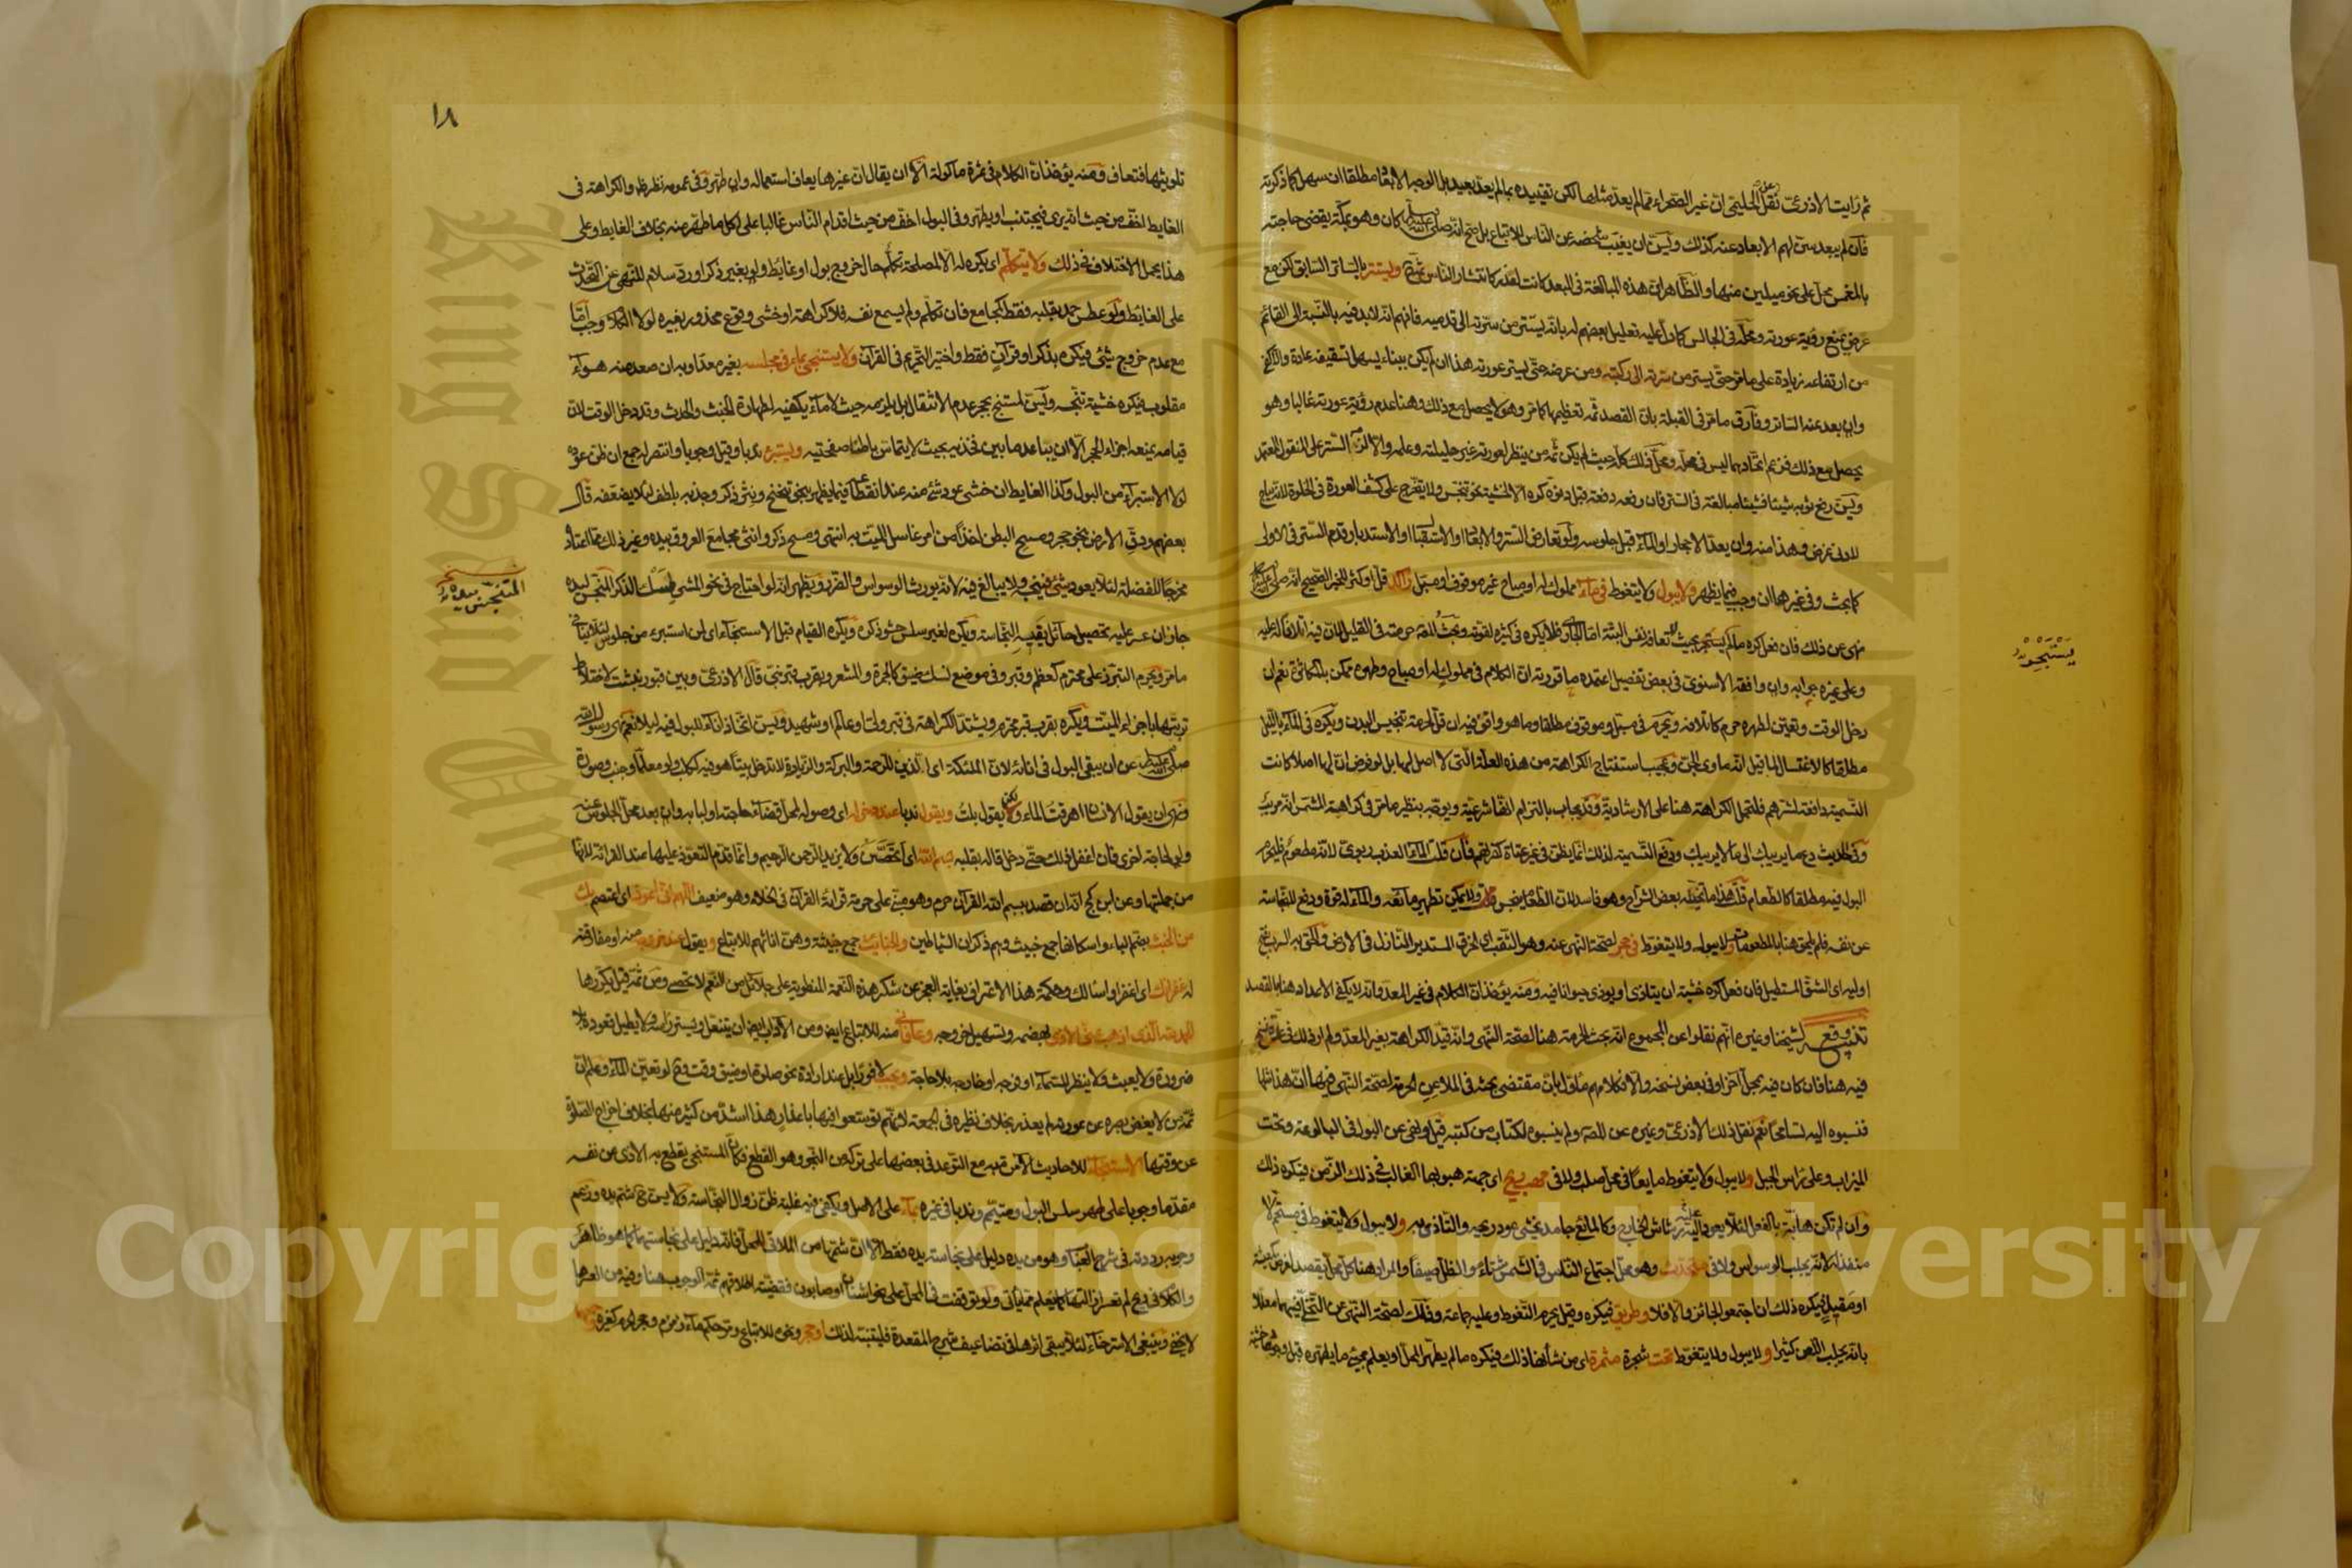 ثم رايت الاذرعي نقل عن الحليمي ان غير الصحراء مما لم يعد مثلها لكن تقييده بما لم يعد بعيد بل الاوجه الابعاد مطلقا ان سهل كما ذكرته
فان لم يبعد سن لهم الابعاد عنه كذلك ويسن ان يغيب شخصه عن الناس للاتباع بل صح انه صلى الله عليه وسلم كان وهو بمكة يقضي حاجته
بالمغمس محل على نحو ميلين منها والظاهر ان هذه المبالغة في البعد كانت لعذر كانتشار الناس ثم ويستتر بالساتر السابق لكن مع
عرض يمنع رؤية عورته ومحله في الجالس كما دل عليه تعليل بعضهم له بانه يستتر من سترته الى قدميه فافهم انه لابد فيه بالنسبة الى القائم
من ارتفاعه زيادة على ما مر حتى يستر من سترته الى ركبته ومن عرضه حتى يستر عورته هذا ان لم يكن ببناء يسهل تسقيفه عادة والا كفى
وان بعد عنه الساتر وفارق ما مر في القبلة بان القصد ثم تعظيمها كما مر وهو لا يحصل مع ذلك وهنا عدم رؤية عورته غالبا وهو
يحصل مع ذلك فزعم اتحادهما ليس في محله ومحل ذلك كله حيث لم يكن ثم من ينظر لعورته غير حليلته وعلمه والا لزمه الستر على المنقول المعتمد
ويسن رفع ثوبه شيئا فشيئا مبالغة في الستر فان رفعه دفعة قبل دنوه كره الا لخشية نحو تنجس ولا يتخرج على كشف العورة في الخلوة لانه يباح
لادنى غرض وهذا منه وان يعد الاحجار او الماء قبل جلوسه ولو تعارض الستر والابعاد او الاستقبال او الاستدبار قدم الستر في الاولى
كما بحث وفي غيرها ان وجب فيما يظهر ولا يبول ولا يتغوط في ماء مملوك له او مباح غير موقوف او مسبل راكد قل او كثر للخبر الصحيح انه صلى الله عليه وسلم
نهى عن ذلك فان فعل كره ما لم يستبحر بحيث لا تعافه نفس البتة اما الجاري فلا يكره في كثيره لقوته وبحث المصنف حرمته في القليل لان فيه اتلافا له عليه
وعلى غيره جوابه وان وافقه الاسنوي في بعض تفصيل اعتمده ما قررته ان الكلام في مملوك له او مباح وطهره ممكن بالمكاثرة نعم ان
دخل الوقت وتعين لطهره حرم كاتلافه ويحرم في مسبل وموقوف مطلقا وما هو واقف فيه ان قل لحرمة تنجيس البدن ويكره في الماء بالليل
مطلقا كالاغتسال لما قيل انه ماوى الجن وعجيب استنتاج الكراهة من هذه العلة التي لا اصل لها بل لو فرض ان لها اصلا كانت
التسمية دافعة لشرهم فلتحمل الكراهة هنا على الارشادية وقد يجاب بالتزام انها شرعية ويوجه بنظير ما مر في كراهة المشمس انه مريب
وفي الحديث دع ما يريبك الى ما لا يريبك ودفع التسمية لذلك انما يظن في غير عتاة كفرتهم فان قلت الماء العذب ربوي لانه مطعوم فليحرم
البول فيه مطلقا كالطعام قلت هذا ما تخيله بعض الشراح وهو فاسد لان الطعام ينجس ولا يمكن تطهير مائعه والماء له قوة ودفع للنجاسة
عن نفسه فلم يلحق هنا بالمطعومات ولا يبول ولا يتغوط في جحر لصحة النهي عنه وهو الثقب اي الخرق المستدير النازل في الارض والحق به السرب بفتح
اوليه اي الشق المستطيل فان فعل كره خشية ان يتاذى او يؤذي حيوانا فيه ومنه يؤخذ ان الكلام في غير المعد وانه لا يكفي الاعداد هنا بالقصد
تنبيه وقع لشيخنا وغيره انهم نقلوا عن المجموع انه بحث الحرمة هنا لصحة النهي وانه قيد الكراهة بغير المعد ولم ار ذلك في عدة نسخ
فيه هنا فان كان فيه بمحل آخر او في بعض نسخه والا فكلامهم مأول بان مقتضى بحثه في الملاعن الحرمة لصحة النهي فيها ان هذا مثلها
فنسبوه اليه تسامحا نعم نقل ذلك الاذرعي وغيره عن المصنف ولم ينسبوه لكتاب من كتبه قيل ونهي عن البول في البالوعة وتحت
الميزاب وعلى راس الجبل ولا يبول ولا يتغوط مايعا في محل صلب ولا في مهب ريح اي جهة هبوبها الغالب في ذلك الزمن فيكره ذلك
وان لم تكن هابة بالفعل لئلا يعود اليه رشاش الخارج وكالمائع جامد يخشى عود ريحه والتاذي به ولا يبول ولا يتغوط في مستحم لا
منفذ له لانه يجلب الوسواس ولا في متحدث وهو محل اجتماع الناس في الشمس شتاء والظل صيفا والمراد هنا كل محل يقصد لغرض كمعيشة
او مقيل فيكره ذلك ان اجتمعوا لجائز والا فلا وطريق فيكره وقيل يحرم التغوط وعليه جماعة وذلك لصحة النهي عن التخلي فيهما معللا
بانه يجلب اللعن كثيرا ولا يبول ولا يتغوط تحت شجرة مثمرة اي من شانها ذلك فيكره ما لم يطهر المحل او يعلم مجيء ما يطهره قبل وجودها خشية
يستبحر
١٨
تلويثها فتعاف ومنه يؤخذ ان الكلام في ثمرة ماكولة الا ان يقال ان غيرها يعاف استعماله وان طهر وفي عمومه نظر ظاهر والكراهة في
الغايط اخف من حيث انه يرى فيجتنب او يطهر وفي البول اخف من حيث اقدام الناس غالبا على اكل ما طهر منه بخلاف الغايط وعلى
هذا يحمل الاختلاف في ذلك ولا يتكلم اي يكره له الا لمصلحة تكلم حال خروج بول او غايط ولو بغير ذكر او رد سلام للنهي عن التحدث
على الغايط ولو عطس حمد بقلبه فقط كالمجامع فان تكلم ولم يسمع نفسه فلا كراهة او خشي وقوع محذور بغيره لولا الكلام وجب اما
مع عدم خروج شيء فيكره بذكر او قرآن فقط واختير التحريم في القرآن ولا يستنجي بماء في مجلسه بغير معد او به ان صعد منه هواء
مقلوب فيكره خشية تنجسه ويسن لمستنج بحجر عدم الانتقال بل يلزمه حيث لا ماء يكفيه لطهارة الخبث والحدث وقد دخل الوقت لان
قيامه يمنعه اجزاء الحجر الا ان يباعد ما بين فخذيه بحيث لا يتماس باطنا صفحتيه ويستبرئ ندبا وقيل وجوبا وانتصر له جمع ان ظن عوده
لولا الاستبراء من البول وكذا الغايط ان خشي عود شيء منه عند انقطاعه فيما يظهر بنحو تنحنح ونتر ذكر وجذبه بلطف لئلا يضعفه قال
بعضهم ودق الارض بنحو حجر ومسح البطن اخذا من امر غاسل الميت به انتهى ومسح ذكر وانثى مجامع العروق بيده وغير ذلك مما اعتاد
مخرجا للفضلة لئلا يعود شيء فينجسه ولا يبالغ فيه لانه يورث الوسواس والضرر ويظهر انه لو احتاج في نحو المشي لمسك الذكر المتنجس بيده
جاز ان عسر عليه تحصيل حائل يقيه النجاسة ويكره لغير سلس حشو ذكره ويكره القيام قبل الاستنجاء اي لمن استبرئ من جلوس لئلا ينافي
ما مر ويحرم التبرز على محترم كعظم وقبر وفي موضع نسك ضيق كالجمرة والمشعر وبقرب قبر نبي قال الاذرعي وبين قبور نبشت لاختلاط
تربتها باجزاء الميت ويكره بقرب قبر محترم ويشتد الكراهة في قبر ولي او عالم او شهيد ويسن اتخاذ اناء للبول فيه ليلا نعم نهى رسول الله
صلى الله عليه وسلم عن ان يبقى البول في انائه لان الملئكة اي الذين للرحمة والبركة والزيادة لا تدخل بيتا هو فيه ككلب ولو معلما وجنب وصورة
نهى ان يقول الانسان اهرقت الماء ولكن يقول بلت ويقول ندبا عند دخوله اي وصوله لمحل قضاء حاجته او لبابه وان بعد محل الجلوس عنه
ولو لحاجة اخرى فان اغفل ذلك حتى دخل قاله بقلبه بسم الله اي اتحصن ولا يزيد الرحمن الرحيم وانما قدم التعوذ عليها عند القراءة لانها
من جملتها وعن ابن كج انه ان قصد ببسم الله القرآن حرم وهو مبني على حرمة قراءة القرآن في الخلاء وهو ضعيف اللهم اني اعوذ اي اعتصم بك
من الخبث بضم الباء واسكانها جمع خبيث وهم ذكران الشياطين والخبائث جمع خبيثة وهن اناثهم للاتباع ويقول عند خروجه منه او مفارقته
له غفرانك اي اغفر او اسالك وحكمة هذا الاعتراف بغاية العجز عن شكر هذه النعمة المنطوية على جلائل من النعم لا تحصى ومن ثمة قيل يكررها
الحمد لله الذي اذهب عني الاذى بهضمه وتسهيل خروجه وعافاني منه للاتباع ايضا ومن الآداب ايضا ان يتنعل ويستر راسه ولا يطيل قعوده بلا
ضرورة ولا يعبث ولا ينظر للسماء او فرجه او خارجه بلا حاجة ويجب لا فورا بل عند ارادة نحو صلوة او ضيق وقت نعم لو تعين الماء وعلم ان
ثمة من لا يغض بصره عن عورته لم يعذر بخلاف نظيره في الجمعة لانهم توسعوا فيها باعذار هذا اشد من كثير منها بخلاف اخراج الصلوة
عن وقتها الاستنجاء للاحاديث الآمرة به مع التوعد في بعضها على تركه من النجو وهو القطع فكان المستنجي يقطع به الاذى عن نفسه
مقدما وجوبا على طهر سلس البول ومتيمم وندبا في غيره بماء على الاصل ويكفي فيه غلبة ظن زوال النجاسة ولا يسن حينئذ شم يده وزعم
وجوبه رددته في شرح العباب وهو من يده دليل على نجاسة يده فقط الا ان شمها من الملاقي للمحل فانه دليل على نجاستهما كما هو ظاهر
لا يخفى وينبغي الاسترخاء لئلا يبقى اثرها في تضاعيف شرج المقعدة فليتنبه لذلك او حجر ونحوه للاتباع
المتنجس بيده
Copyright © King Saud University
King Saud University